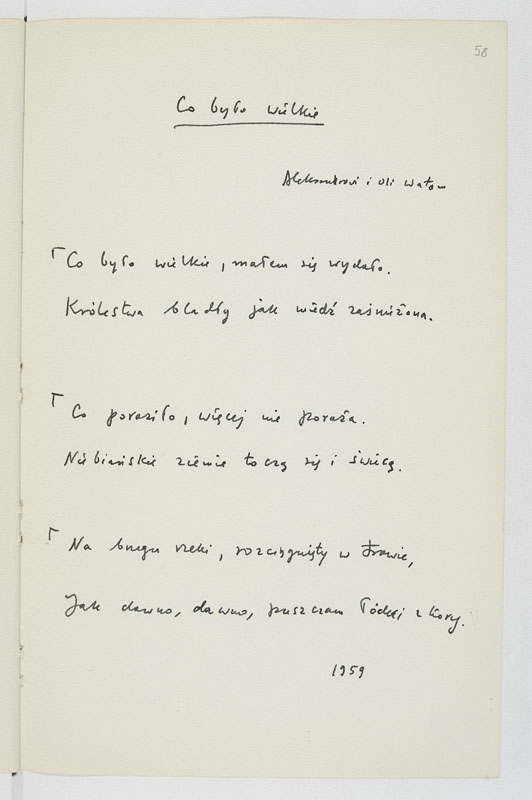 58
Co było wielkie
Aleksandrowi i Oli Watom
Co było wielkie, małem się wydało.
Królestwa bladły jak miedź zaśnieżona.
Co poraziło, więcej nie poraża.
Niebiańskie ziemie toczą się i świecą.
Na brzegu rzeki, rozciągnięty w trawie,
Jak dawno, dawno, puszczam łódki z kory.
1959